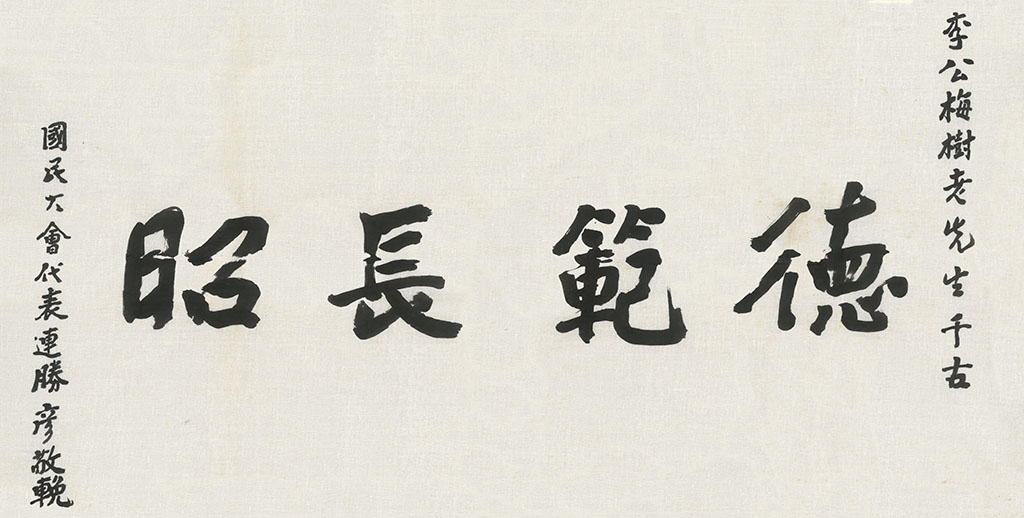 李公梅樹老先生千古
德範長昭
國民大會代表連勝彥敬輓